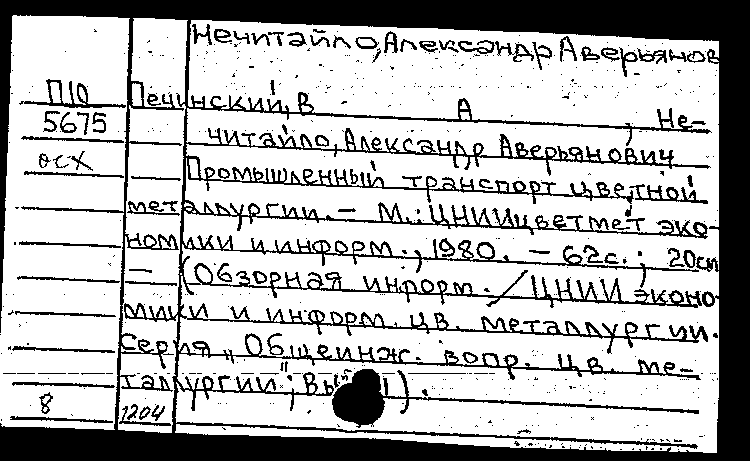 Нечитайло, Александр Аверьянов
П10 Печинский, В А , Не-
5675 читайло, Александр Аверьянович
осх Промышленный транспорт цветной
металлургии. — М.: ЦНИИцветмет эко-
номики и информ., 1980. — 62с.; 20см
— (Обзорная информ. / ЦНИИ эконо-
мики и информ. цв. металлургии.
Серия „Общеинж. вопр. цв. ме-
таллургии"; Вып 1).
8 1204